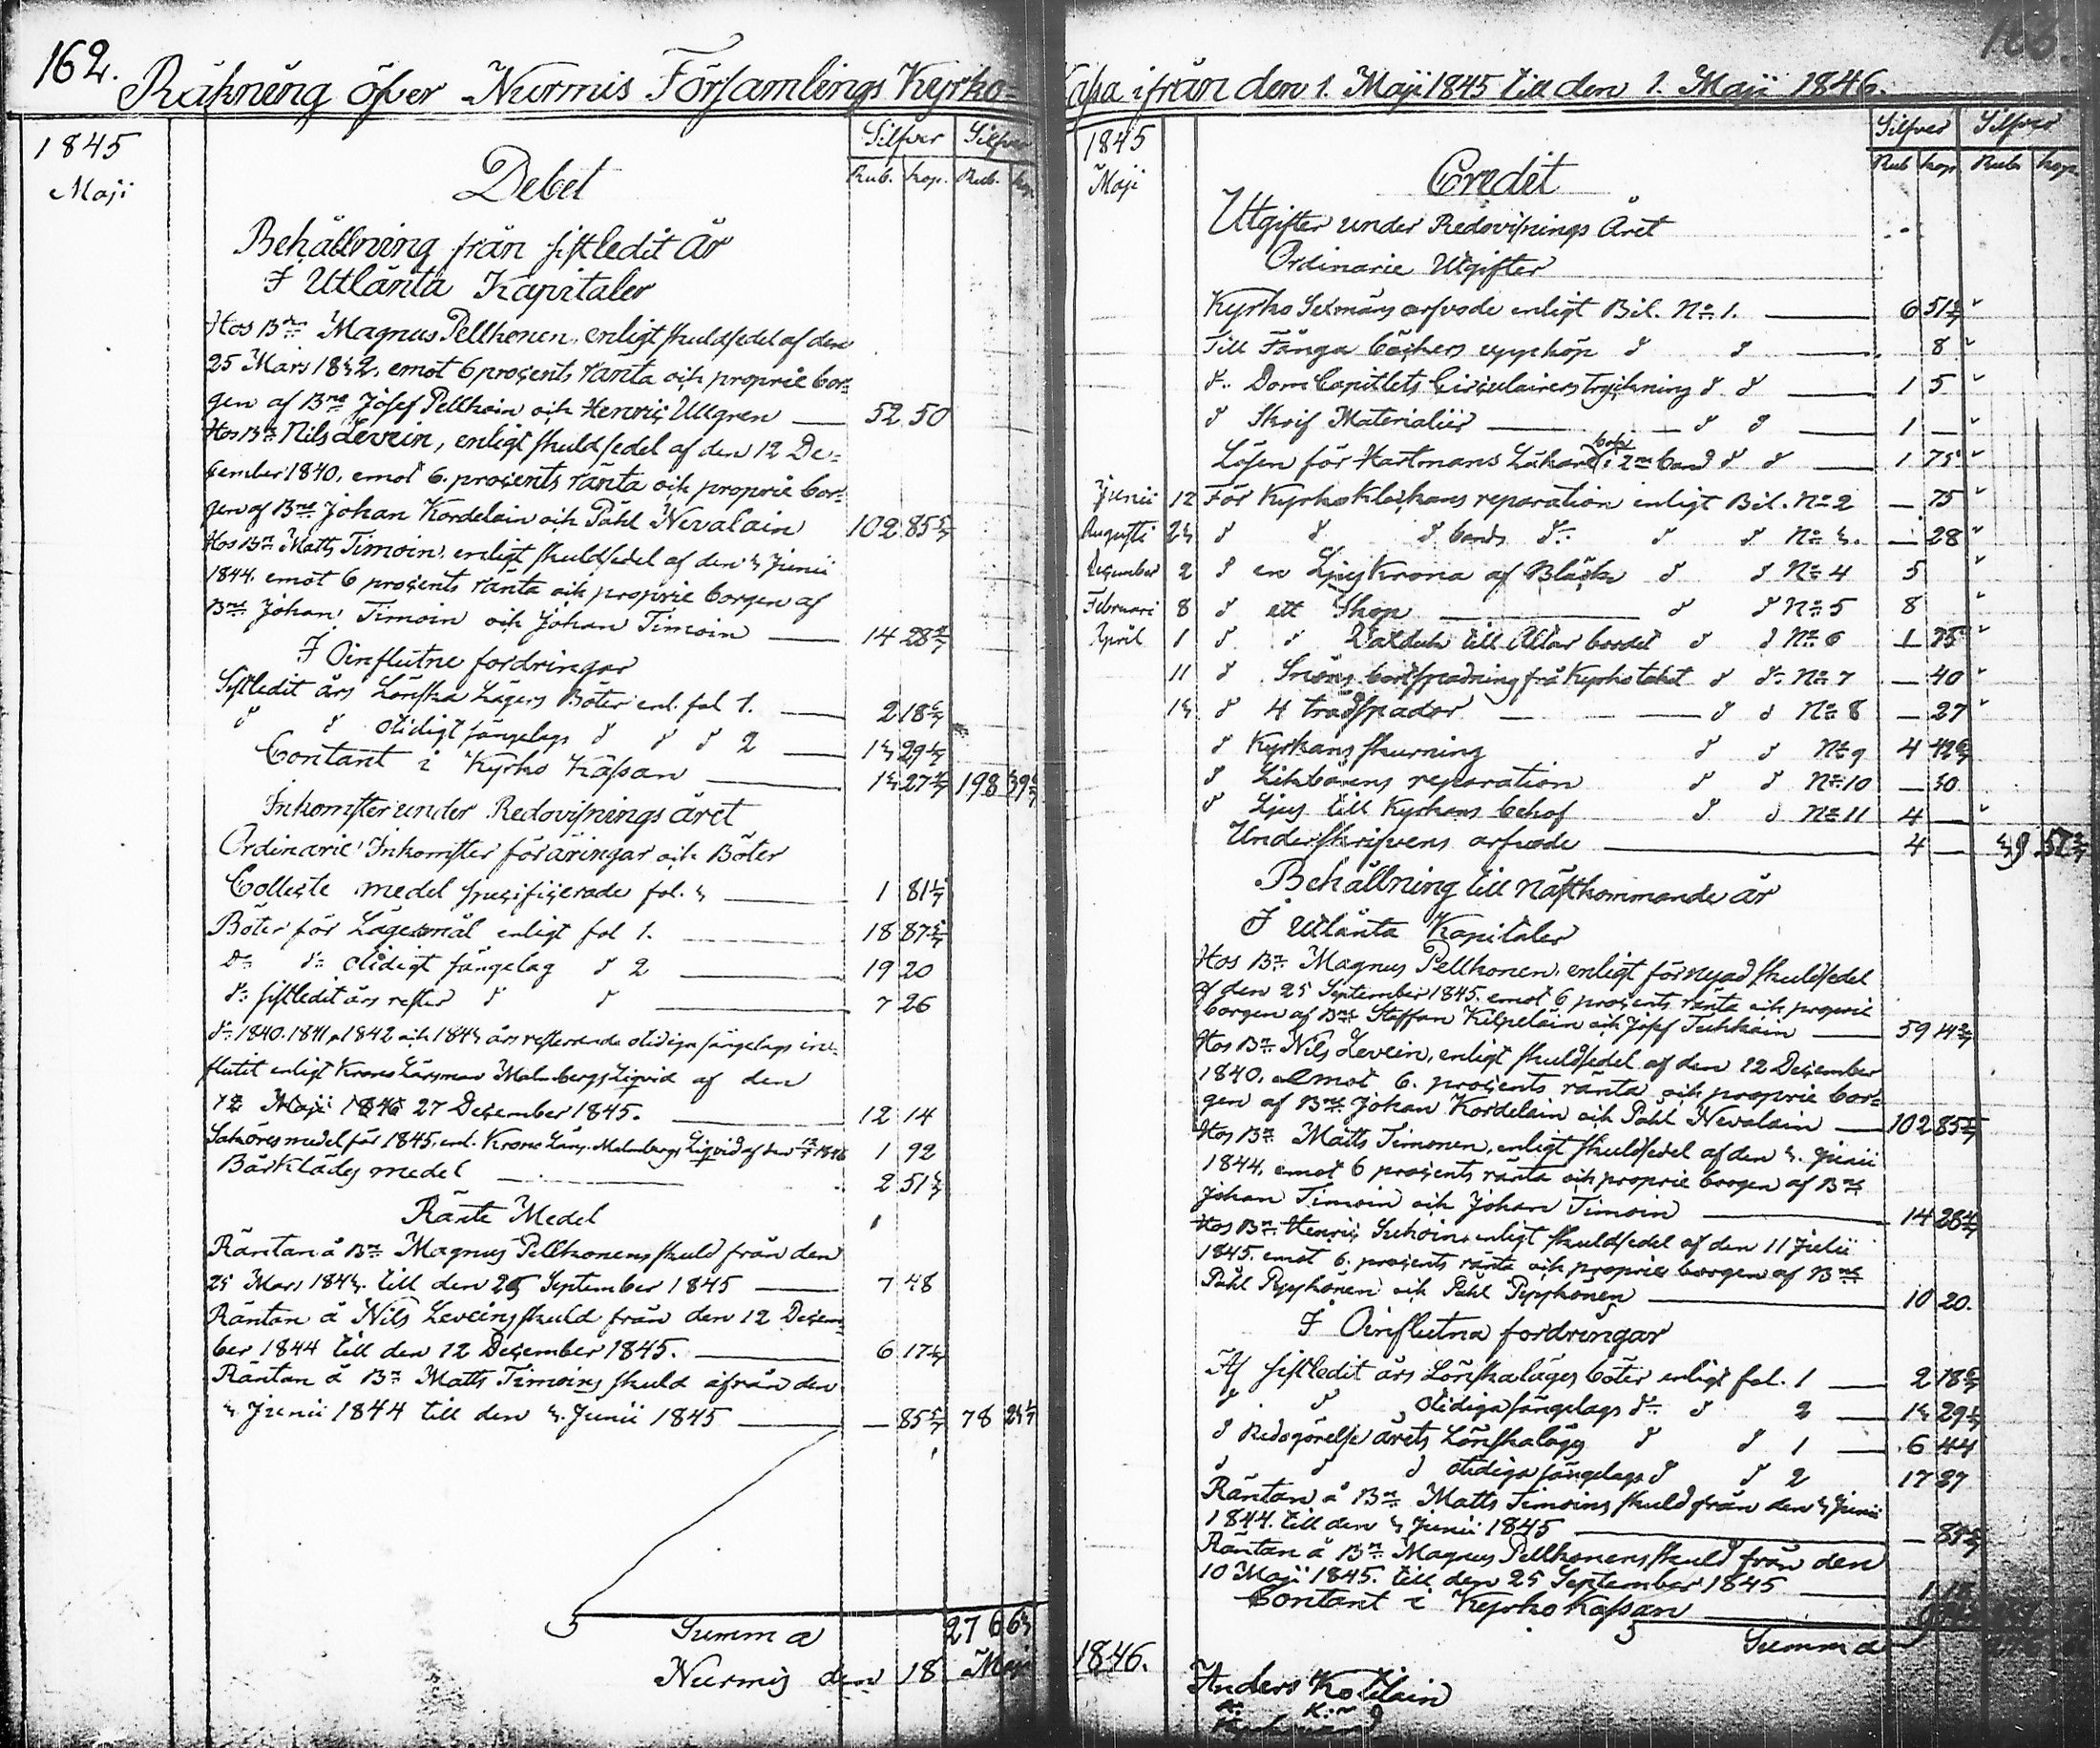 162.
Räkning öfver Nurmis Församlings Kyrko=
1845
Maji
Silfver Silfver
Rub. kop. Rub. kop.
Debet
Behållning från sistledit År
I Utlånta Kapitaler
Hos Bn Magnus Pellhonen, enligt skuldsedel af den
25 Mars 1842, emot 6 procents ränta och proprie bor=
gen af Bne Josef Pellkoin och Henric Ullgren 52 50
Hos Bn Nils Levein, enligt skuldsedel af den 12 De=
cember 1840, emot 6. procents ränta och proprie bor=
gen af Bne Johan Kordelain och Påhl Nevalain 102 85 5/7
Hos Bn Matts Timoin, enligt skuldsedel af den 3 Junii
1844. emot 6 procents ränta och proprie borgen af
Bne Johan Timoin och Johan Timoin 14 28 4/7
I Oinflutne fordringar
Sistledit års Lönska Lägers Böter enl. fol 1. 2 18 6/7
d d otidigt sängelags d d d 2 13 29 1/7
Contant i Kyrko Kassan 13 27 4/7 198 39 6/7
Inkomster under Redovisnings året
Ordinarie Inkomster föräringar och Böter
Collecte medel specificerade fol. 3 1 81 1/7
Böter för Lägersmål enligt fol 1. 18 87
Do do otidigt sängelag d 2 19 20
do sistledit års rester d d 7 26
do 1840. 1841, 1842 och 1843 års resterande otidiga sängelags in=
flutit enligt Krono Länsman Malmbergs Liqvid af den
12 Maji 1845 27 December 1845. 12 14
Saköresmedel för 1845. enl. Krono Läns. Malmbergs Liqvid af den 1846 1 92
Bårklädes medel 2 51 3/7
Ränte Medel
Räntan å Bn Magnus Pellhonens skuld från den
25 Mars 1843. till den 25 September 1845 7 48
Räntan å Nils Leveins skuld från den 12 Decem=
ber 1844 till den 12 December 1845. 6 17 1/7
Räntan å Bn Matts Timoins skuld ifrån den
3 Junii 1844 till den 3. Junii 1845 — 85 5/7 78 23 1/7
Summa 276 63
Nurmis den 18 Maji
Cassa ifrån den 1. Maji 1845 till den 1. Maji 1846.
1845
Maji
Silfver Silfver
Rub kop Rub. kop.
Credit
Utgifter under Redovisnings Året
Ordinarie Utgifter
Kyrko Sexmäns arfvode enligt Bil. No 1. 6 51 3/7
Till Fånga Böckers uppköp d d 8
do Dom Capitlets Circulairers tryckning d d 1 5
d Skrif Materialier d d 1 —
Lösen för Hartmans Läkare bok i 2ne band d d 1 75
Junii 12 För Kyrko Klockans reparation enligt Bil. No 2 — 75
Augusti 23 d d d bands do d d No 3. — 28
December 2 d en Ljus Krona af Bläck d d No 4 5
Februari 8 d ett Skop d d No 5 8
April 1 d d Vaxduk till Altar bordet d d No 6 1 75
11 d Snöns bortspadning frå Kyrkotaket d do No 7 — 40
13 d 4 trädspador d d No 8 — 27
d Kyrkans skurning d d No 9 4 42 6/7
d Likbårens reparation d d No 10 — 30
d Ljus till Kyrkans behof d d No 11 4 —
Underskrifvens arfvode 4 — 39 57 2/7
Behållning till näskommande år
I Utlånta Kapitaler
Hos Bn Magnus Pellhonen, enligt förnyad skuldsedel
af den 25 September 1845. emot 6 procents ränta och proprie
borgen af Bne Staffan Kilpeläin och Josef Tuhkain 59 14 2/7
Hos Bn Nils Levein, enligt skuldsedel af den 12 December
1840. emot 6. procents ränta och proprie bor=
gen af Bne Johan Kordelain och Påhl Nevalain 102 85 5/7
Hos Bn Matts Timonen, enligt skuldsedel af den 3. Junii
1844. emot 6 procents ränta och proprie borgen af Bne
Johan Timoin och Johan Timoin 14 28 4/7
Hos Bn Henric Suhoin, enligt skuldsedel af den 11 Julii
1845. emot 6. procents ränta och proprie borgen af Bne
Påhl Pyykönen och Påhl Pyykönen 10 20.
I Oinflutna fordringar
Af sistledit års Lönskaläges böter enligt fol. 1 2 18 6/7
d d otidiga sängelags do d 2 13 29 1/7
d Redogörelse årets Lönskaläges d d 1 6 44
d d d otidiga sängelags d d 2 17 27
Räntan å Bn Matts Timoins skuld från den 3 Junii
1844. till den 3 Junii 1845 — 85 5/7
Räntan å Bn Magnus Pellhonens skuld från den
10 Maji 1845. till den 25 September 1845
Contant i Kyrko Kassan
Summa
1846.
Anders Kotilain